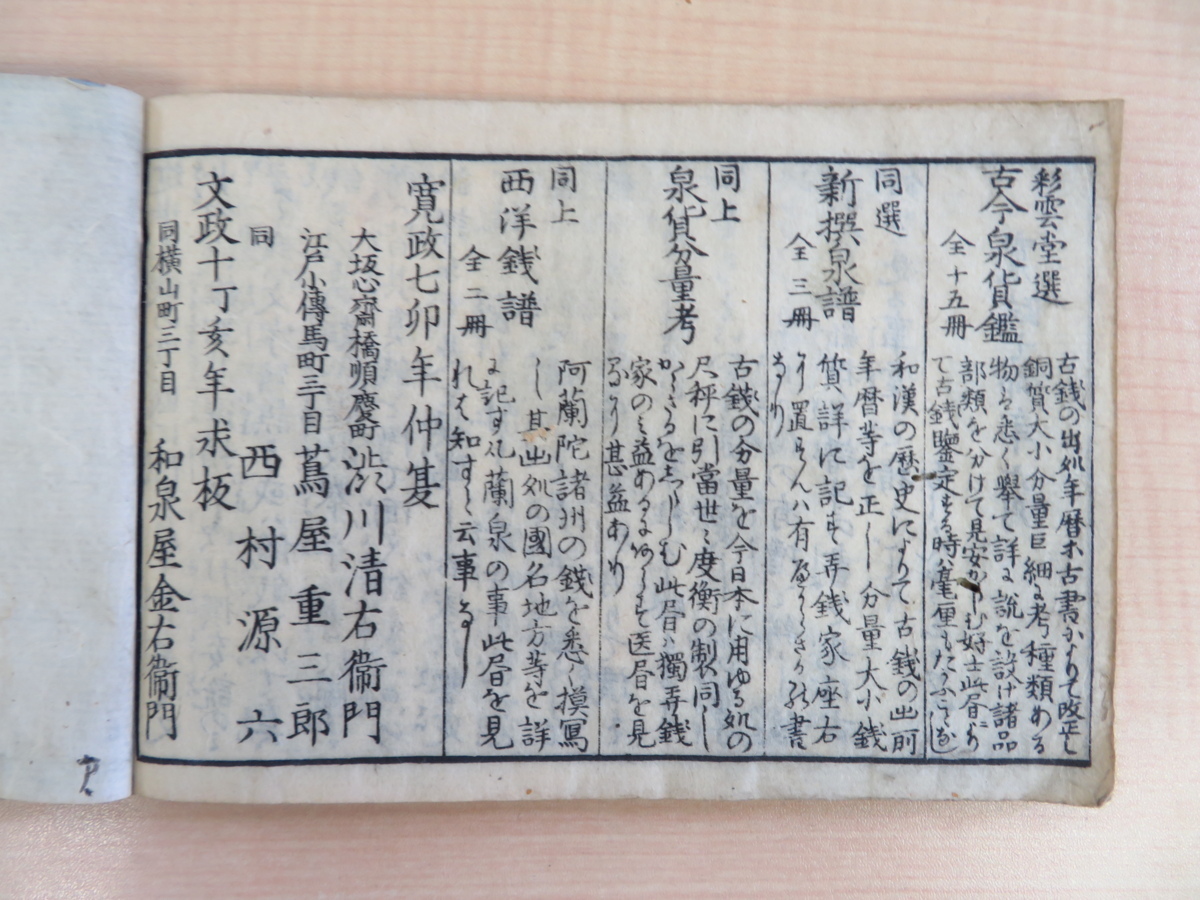 彩雲堂選
古今泉貨鑑
全十五冊
古錢の出処年暦ホ古書によりて改正し
銅質大小分量巨細に考種類ある
物ハ悉く舉て詳に説を設け諸品
部類を分けて見安からしむ好士此書にり
て古錢鑒定する時ハ毫厘もたかふことなし
同選
新撰泉譜
全三冊
和漢の歴史によりて古錢の出所
年暦等を正し分量大小錢
質詳に記す弄錢家座右
に置すんハ有へからさるの書
なり
同上
泉貨分量考
古錢の分量を今日本に用ゆる処の
尺秤に引當世々度衡の制同し
からさるをしらしむ此書ハ獨弄錢
家のミ益あるにあらす医書を見
るに甚益あり
同上
西洋錢譜
全二冊
阿蘭陀諸州の錢を悉く摸寫
し其出処の國名地方等を詳
に記す凡蘭泉の事此書を見
れは知すと云事なし
寛政七卯年仲夏
大坂心齋橋順慶町 渋川清右衞門
江戸小傳馬町三丁目 蔦屋重三郎
同 西村源六
文政十丁亥年求板
同横山町三丁目 和泉屋金右衞門